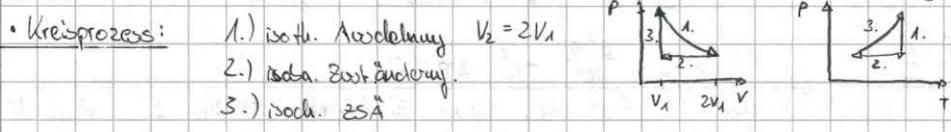 • Kreisprozess: 1.) isoth. Ausdehnung V₂ = 2V₁
2.) isoba. Zust. änderung.
3.) isoch. ZSÄ
P 3. 1. 2. V₁ 2V₁ V
P 3. 1. 2. T